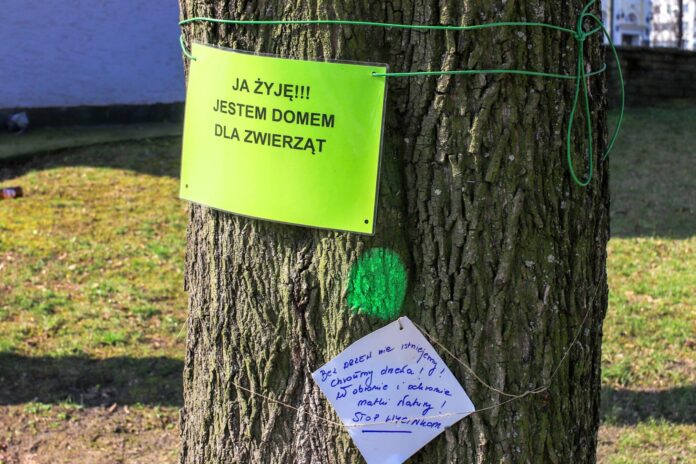 JA ŻYJĘ!!!
JESTEM DOMEM
DLA ZWIERZĄT
BEZ DRZEW nie istniejemy!
Chrońmy drzewa!
W obronie i ochronie
matki Natury!
STOP WYCINKOM